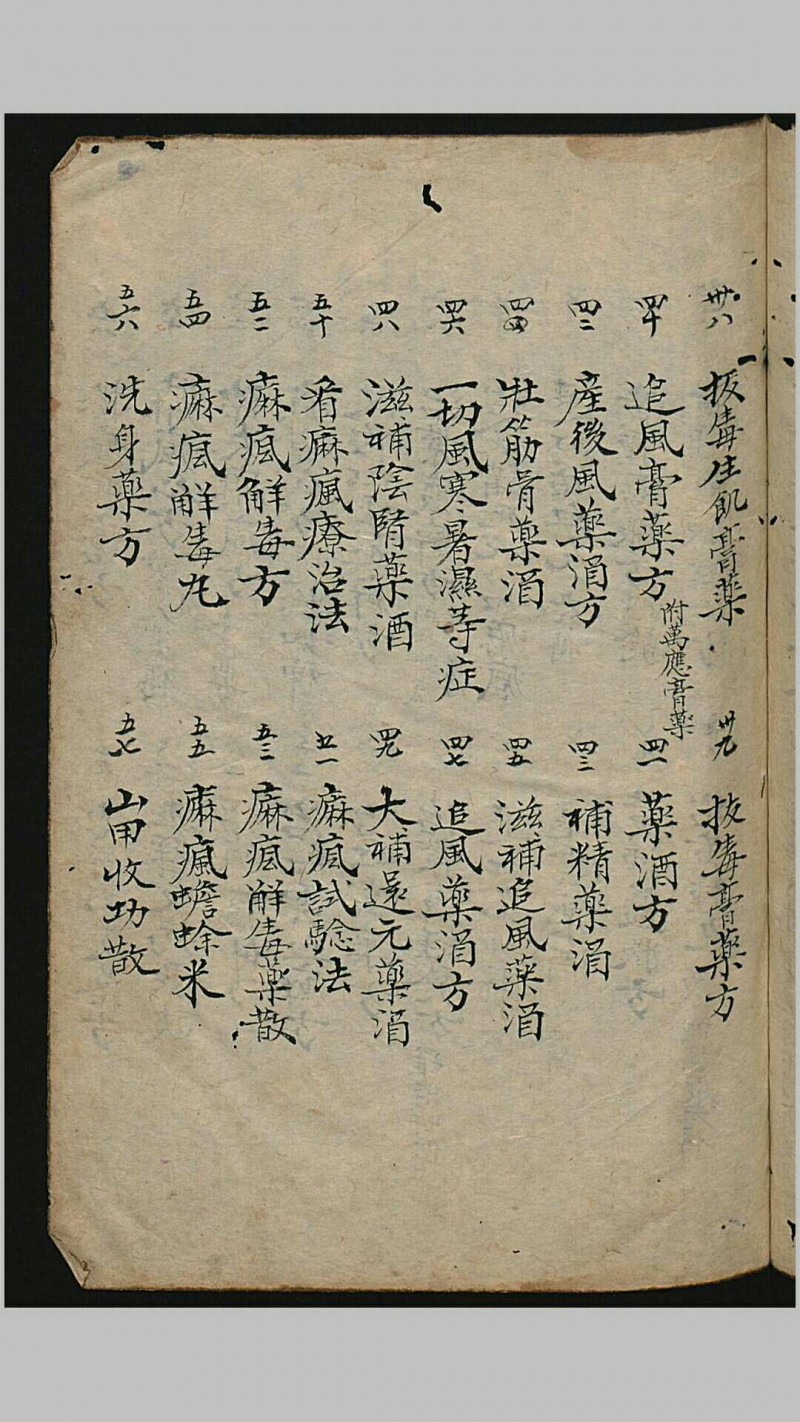 卅八 拔毒生飢膏藥
卅九 拔毒膏藥方
四十 追風膏藥方 附萬應膏藥
四一 藥酒方
四二 產後風藥酒方
四三 補精藥酒
四四 壯筋骨藥酒
四五 滋補追風藥酒
四六 一切風寒暑濕等症
四七 追風藥酒方
四八 滋補陰腎藥酒
四九 大補還元藥酒
五十 看痲瘋療治法
五一 痲瘋試騐法
五二 痲瘋解毒方
五三 痲瘋解毒藥散
五四 痲瘋解毒丸
五五 痲瘋蟾蜍米
五六 洗身藥方
五七 山甲收功散